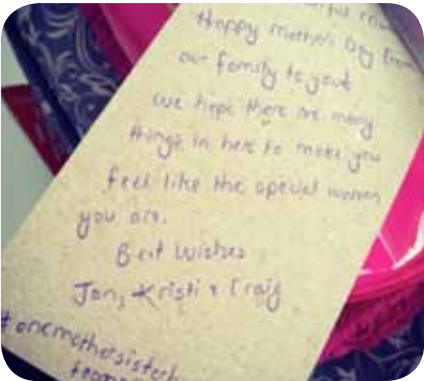 Happy Mother's Day from
our family to yours
we hope there are many
things in here to make you
feel like the special women
you are.
Best Wishes
Jon, Kristi & Craig